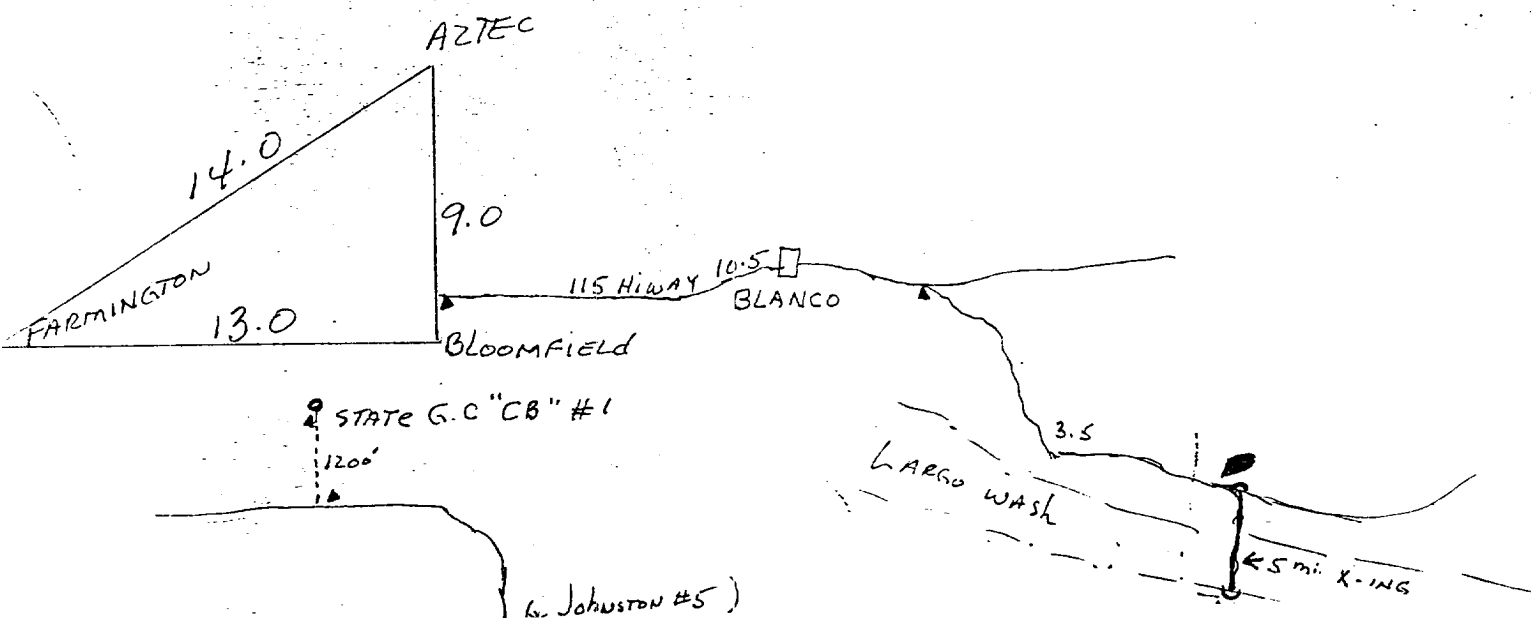 AZTEC
14.0
9.0
FARMINGTON
13.0
BLOOMFIELD
115 HIWAY 10.5
BLANCO
STATE G.C "CB" #1
1200'
3.5
LARGO WASH
←5 mi. X-ING
JOHNSTON #5)